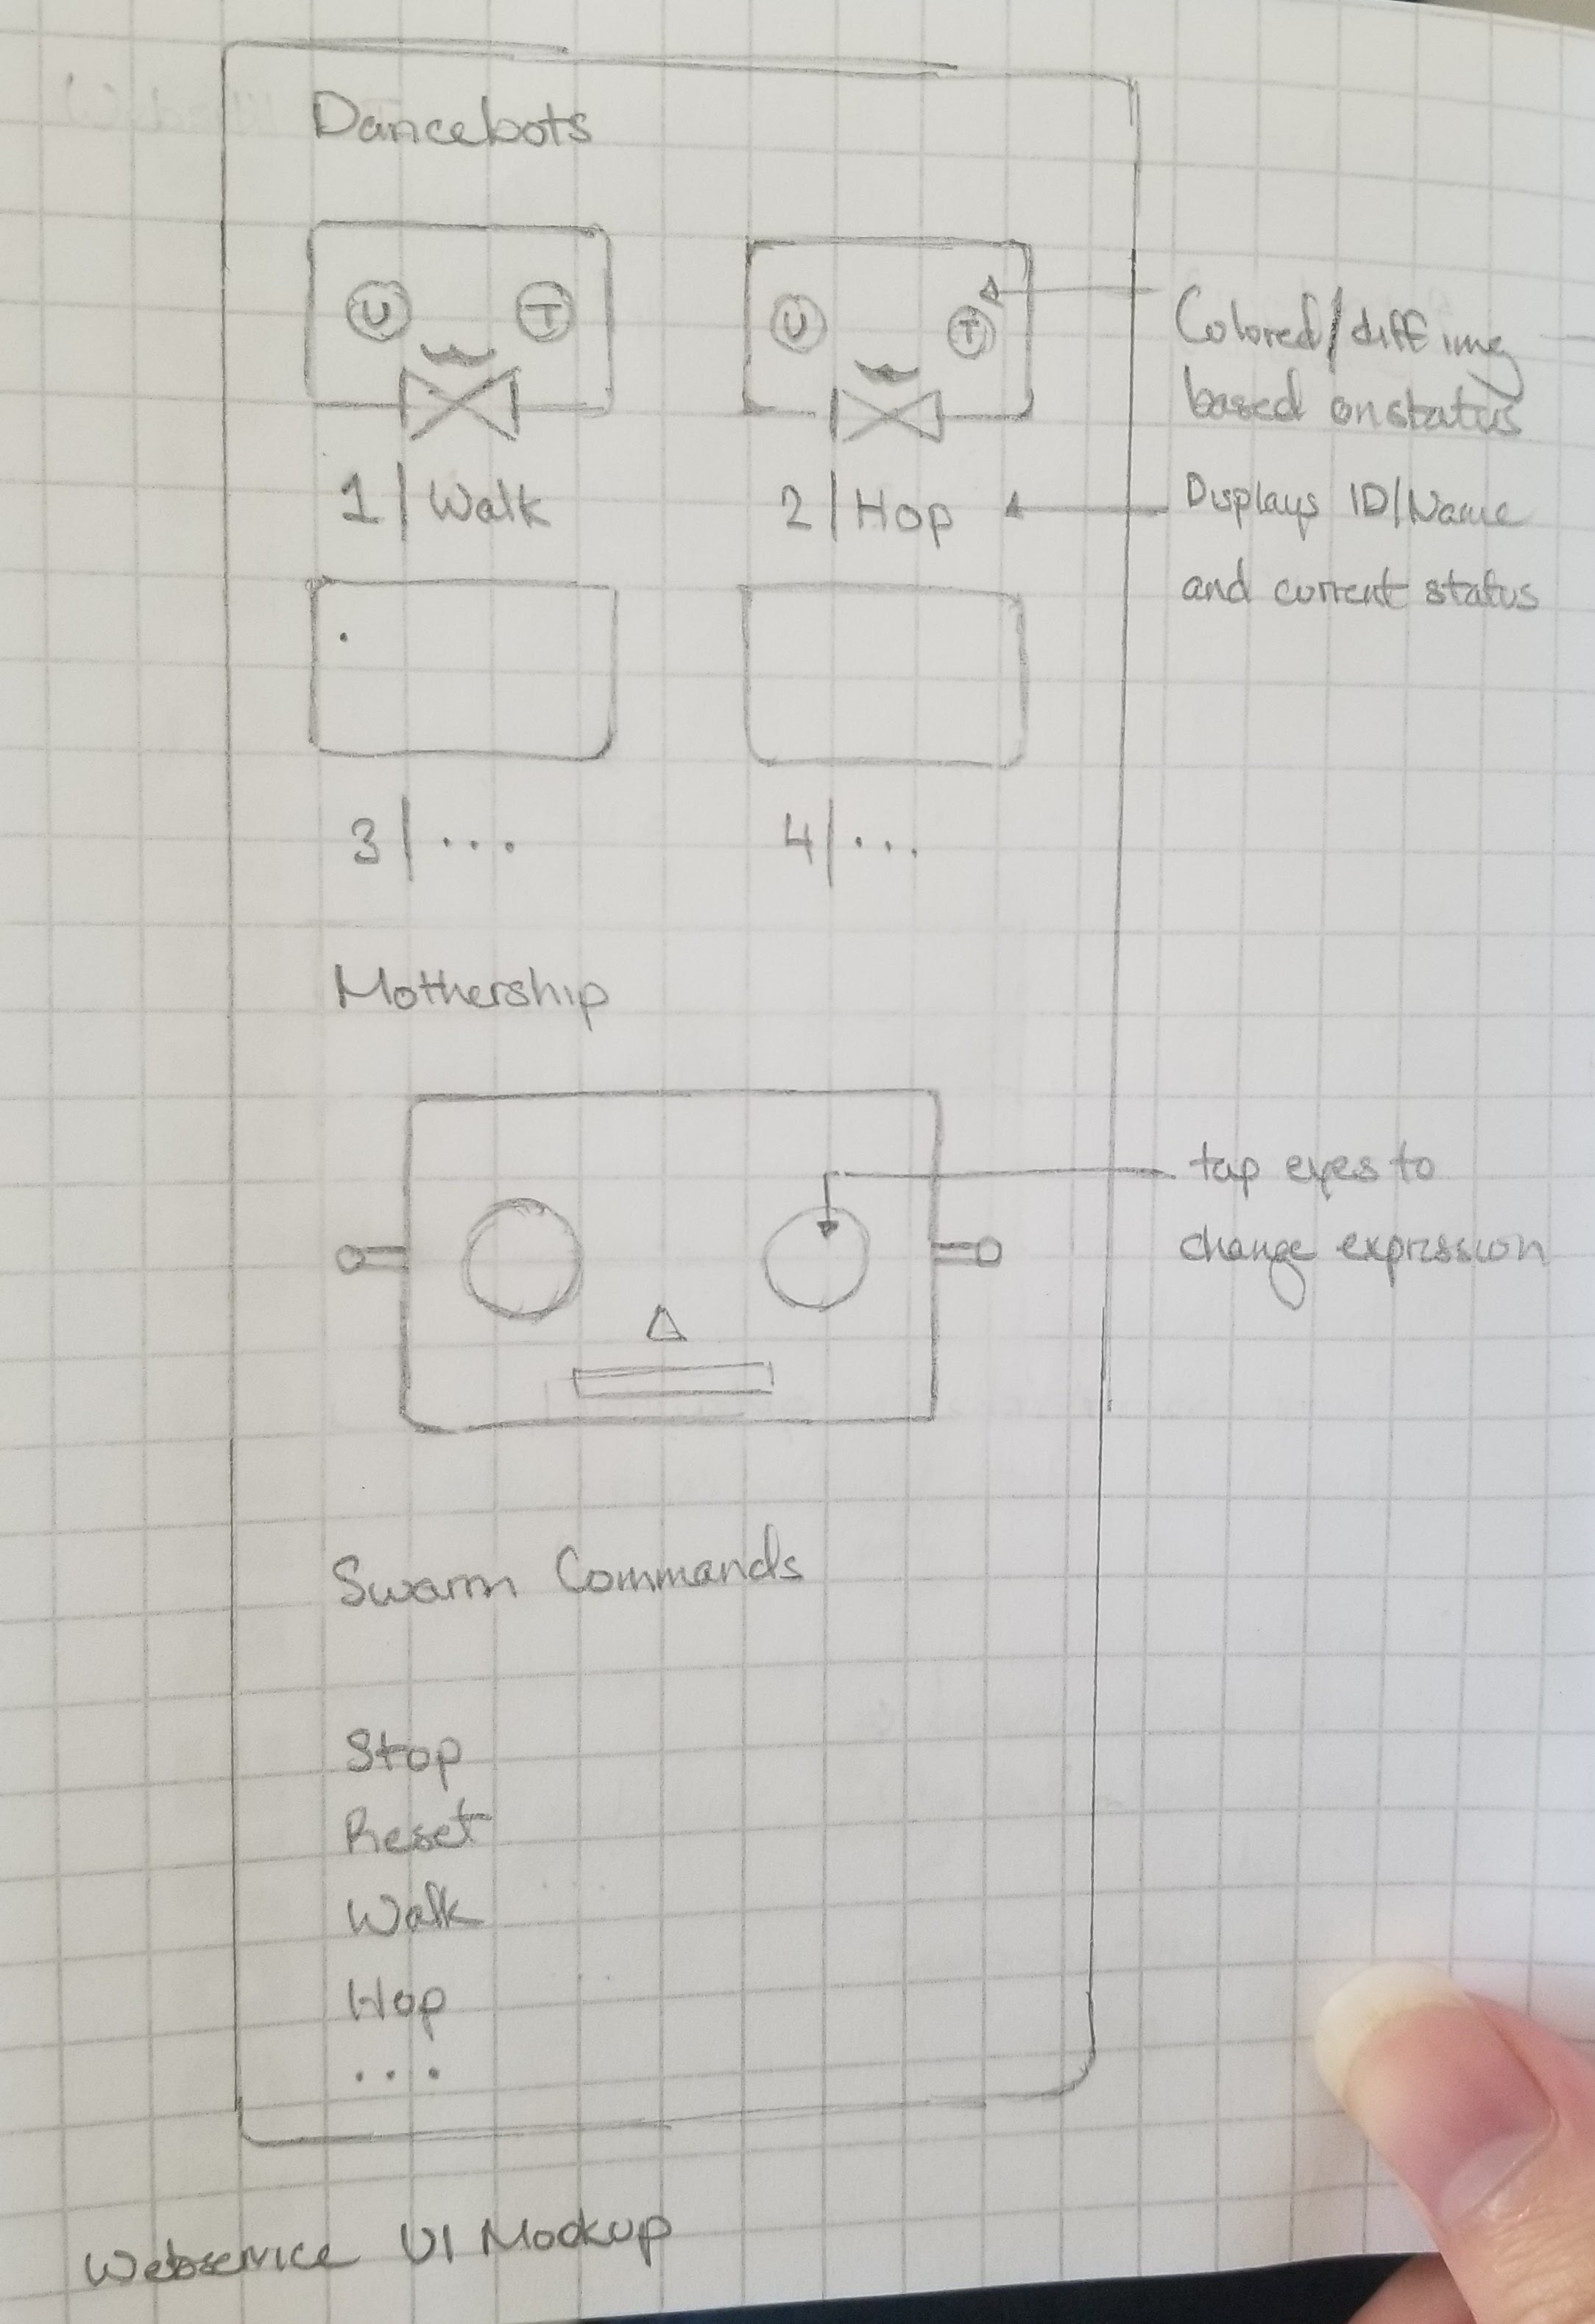 Dancebots
U T
U T
Colored/diff img
based on status
1 | Walk
2 | Hop
Displays ID/Name
and current status
3 | ...
4 | ...
Mothership
tap eyes to
change expression
Swarm Commands
Stop
Reset
Walk
Hop
...
Webservice UI Mockup